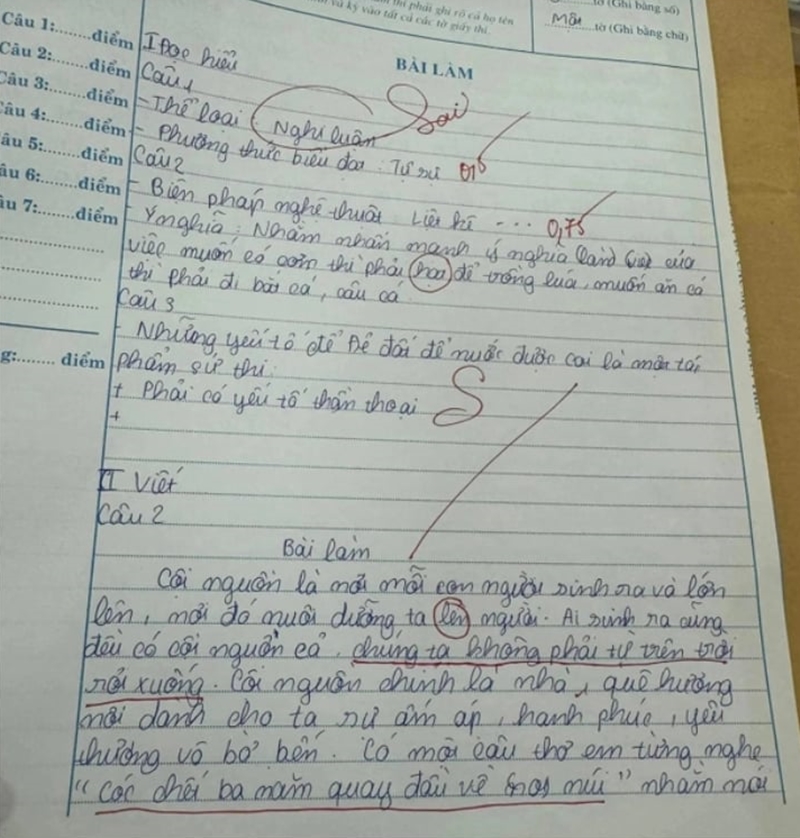 thí phải ghi rõ cả họ tên
và ký vào tất cả các tờ giấy thi.
tờ (Ghi bằng số)
Một tờ (Ghi bằng chữ)
Câu 1:.......điểm
Câu 2:.......điểm
Câu 3:.......điểm
Câu 4:.......điểm
Câu 5:.......điểm
Câu 6:.......điểm
Câu 7:.......điểm
g:....... điểm
BÀI LÀM
I Đọc hiểu
Câu 1
- Thể loại : Nghị luận Sai
- Phương thức biểu đạt : Tự sự 0,5
Câu 2
- Biện pháp nghệ thuật : Liệt kê ... 0,75
- Ý nghĩa : Nhằm nhấn mạnh ý nghĩa của
việc muốn có cơm thì phải để trồng lúa, muốn ăn cá
thì phải đi bắt cá, câu cá
Câu 3
- Những yếu tố để Đẻ đất đẻ nước được coi là một tác
phẩm sử thi:
+ Phải có yếu tố thần thoại S
+
II Viết
Câu 2
Bài làm
Cội nguồn là nơi mỗi con người sinh ra và lớn
lên, nơi đó nuôi dưỡng ta lên người. Ai sinh ra cũng
đều có cội nguồn cả, chúng ta không phải từ trên trời
rơi xuống. Cội nguồn chính là nhà, quê hương
nơi danh cho ta sự ấm áp, hạnh phúc, yêu
thương vô bờ bến. Có một câu thơ em từng nghe
“ Cóc chết ba năm quay đầu về núi ” nhằm nói